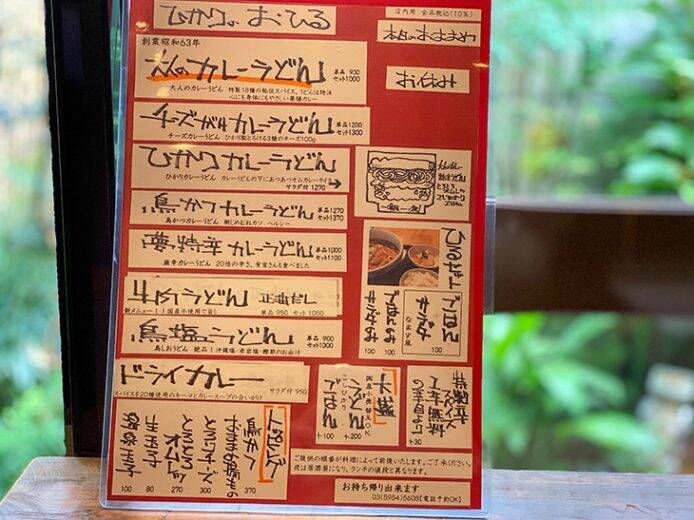 ひかりの おひる
店内用 全品税込(10%)
本日のおすすめ
お休み
創業昭和63年
大人のカレーうどん 単品 900
セット1000
大人のカレーうどん 特製18種の秘伝スパイス。うどんは特注
心にも身体にもやさしい薬膳カレー
チーズカレーうどん 単品1200
セット1300
チーズカレーうどん ひかり髪とろける3種のチーズ100g
ひかりカレーうどん
ひかりカレーうどん カレーうどんの下にあつあつオムカレーライス
サラダ付 1270
鳥かつカレーうどん 単品1270
セット1370
鳥かつカレーうどん 朝じめむねカツ ヘルシー
カレーうどん 単品1,000
セット1100
激辛カレーうどん 20倍の辛さ、有吉さんも食べました
牛肉うどん 正直だし
新メニュー!!国産牛使用で旨し 単品 950 セット 1050
鳥塩うどん 単品 900
セット1000
鳥しおうどん 絶品!沖縄塩・米岩塩・鰹節のお出汁
ドライカレー
サラダ付 950
スパイスを20種使用のキーマとカレースープの合いがけ
ひるセット
ごはん
サラダ
なます風
100
ごはんのみ
100
サラダのみ
100
大盛
国産小麦
うどん
+200
こしひかり
ごはん
+100
+30
トッピング
鳥かつ
370
300
とろけるチーズ
270
オムレツ
170
生玉子
80
温泉玉子
100
ご提供の順番が料理によって前後いたします。ご了承ください。
夜は居酒屋になり、ランチの値段と異なります。
お持ち帰り出来ます
03(5954)5608【電話予約OK】